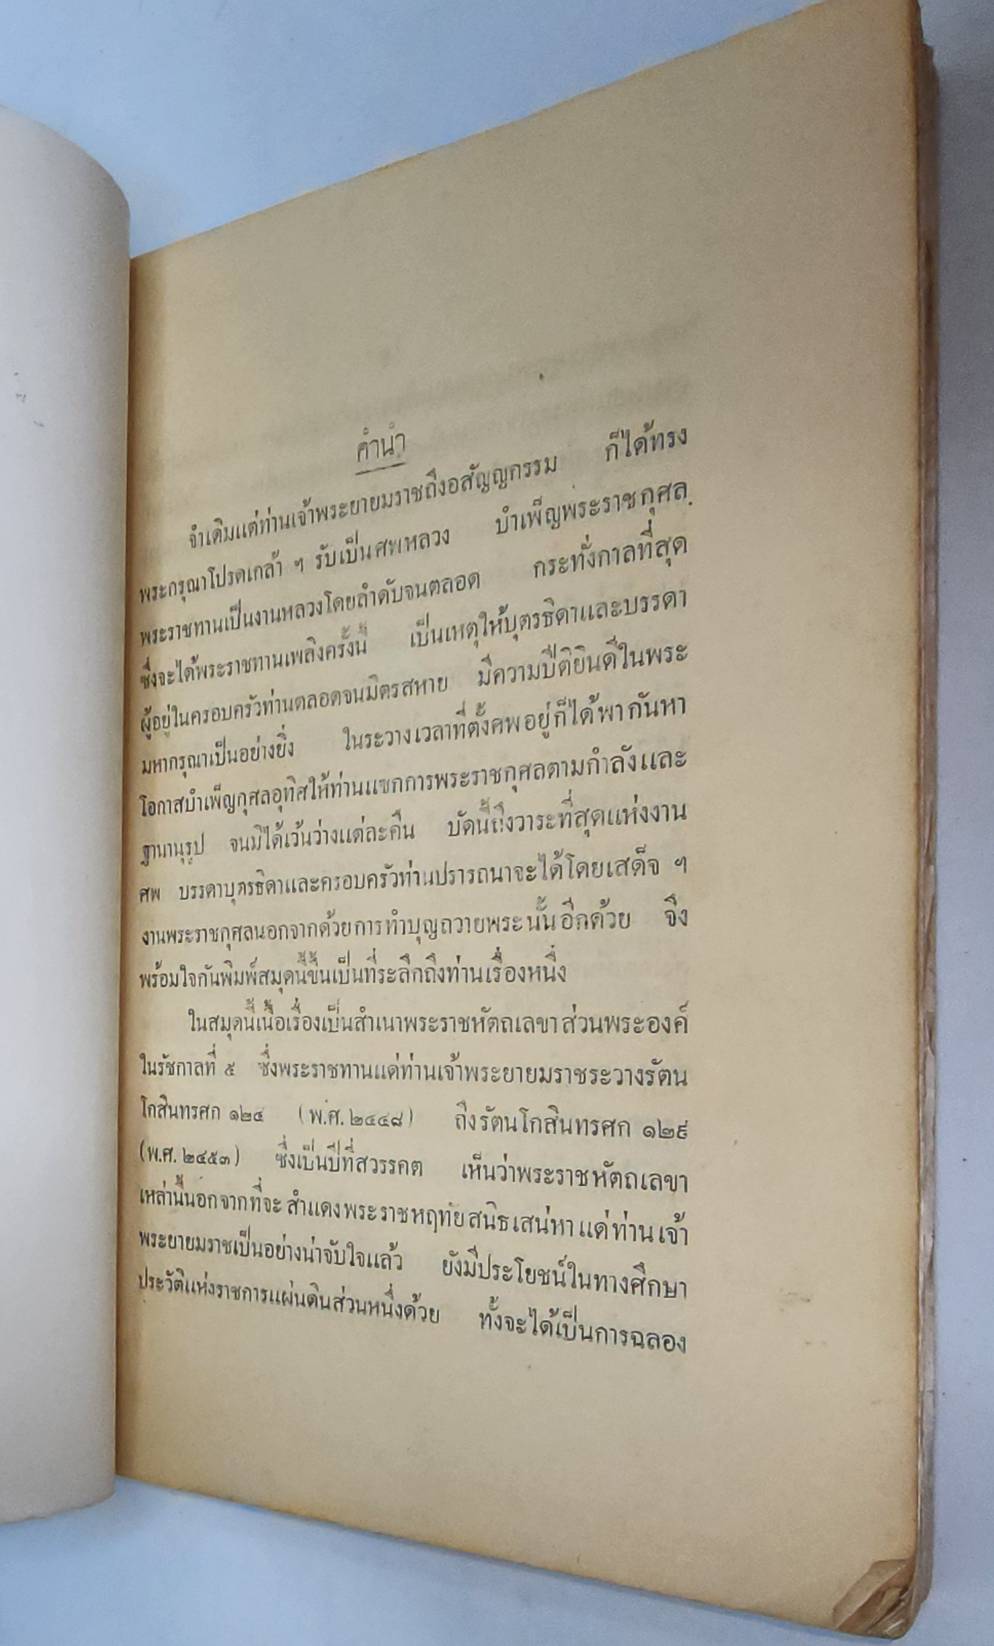 คำนำ
จำเดิมแต่ท่านเจ้าพระยายมราชถึงอสัญญกรรม ก็ได้ทรง
พระกรุณาโปรดเกล้า ฯ รับเป็นศพหลวง บำเพ็ญพระราชกุศล
พระราชทานเป็นงานหลวงโดยลำดับจนตลอด กระทั่งกาลที่สุด
ซึ่งจะได้พระราชทานเพลิงครั้งนี้ เป็นเหตุให้บุตรธิดาและบรรดา
ผู้อยู่ในครอบครัวท่านตลอดจนมิตรสหาย มีความปีติยินดีในพระ
มหากรุณาเป็นอย่างยิ่ง ในระวางเวลาที่ตั้งศพอยู่ก็ได้พากันหา
โอกาสบำเพ็ญกุศลอุทิศให้ท่านแซกการพระราชกุศลตามกำลังและ
ฐานานุรูป จนมิได้เว้นว่างแต่ละคืน บัดนี้ถึงวาระที่สุดแห่งงาน
ศพ บรรดาบุตรธิดาและครอบครัวท่านปรารถนาจะได้โดยเสด็จ ฯ
งานพระราชกุศลนอกจากด้วยการทำบุญถวายพระนั้นอีกด้วย จึง
พร้อมใจกันพิมพ์สมุดนี้ขึ้นเป็นที่ระลึกถึงท่านเรื่องหนึ่ง
ในสมุดนี้เนื้อเรื่องเป็นสำเนาพระราชหัตถเลขาส่วนพระองค์
ในรัชกาลที่ ๕ ซึ่งพระราชทานแด่ท่านเจ้าพระยายมราชระวางรัตน
โกสินทรศก ๑๒๔ (พ.ศ. ๒๔๔๘) ถึงรัตนโกสินทรศก ๑๒๙
(พ.ศ. ๒๔๕๓) ซึ่งเป็นปีที่สวรรคต เห็นว่าพระราชหัตถเลขา
เหล่านี้นอกจากที่จะสำแดงพระราชหฤทัยสนิธเสน่หาแด่ท่านเจ้า
พระยายมราชเป็นอย่างน่าจับใจแล้ว ยังมีประโยชน์ในทางศึกษา
ประวัติแห่งราชการแผ่นดินส่วนหนึ่งด้วย ทั้งจะได้เป็นการฉลอง